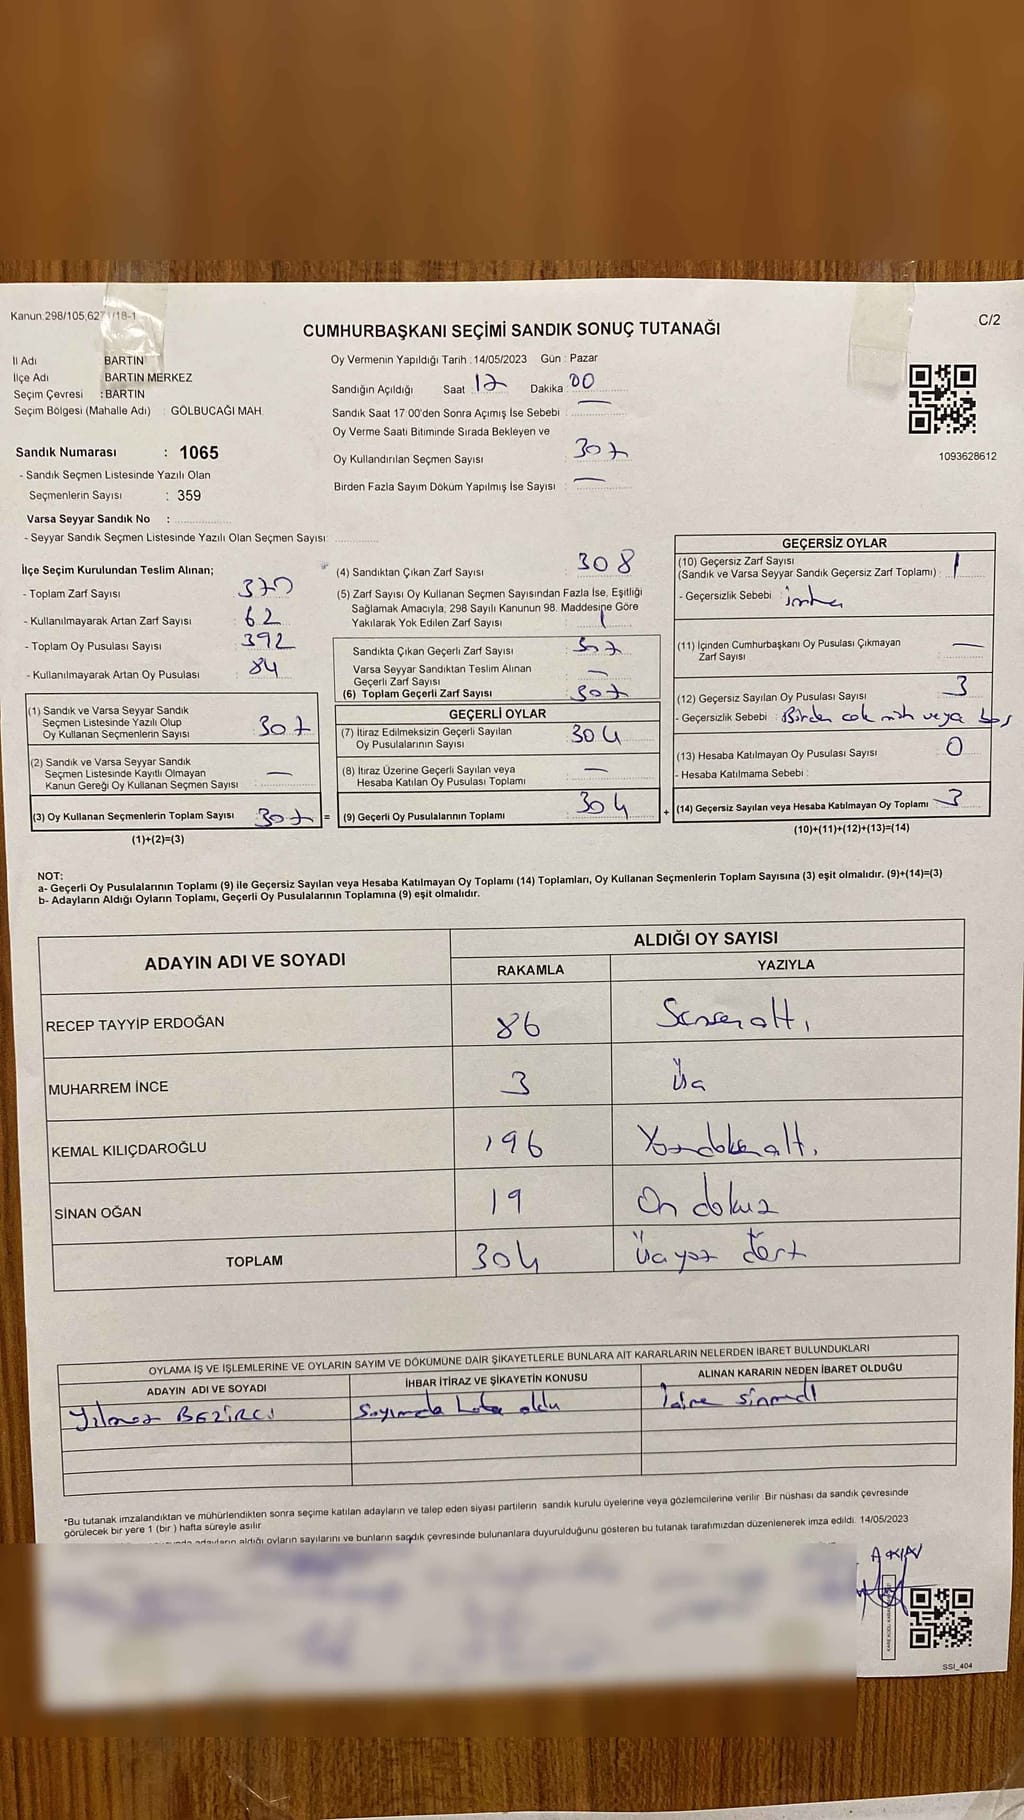 Kanun.298/105,627 /18-1
C/2
CUMHURBAŞKANI SEÇİMİ SANDIK SONUÇ TUTANAĞI
İl Adı BARTIN
İlçe Adı BARTIN MERKEZ
Seçim Çevresi : BARTIN
Seçim Bölgesi (Mahalle Adı) : GÖLBUCAĞI MAH.
Sandık Numarası : 1065
- Sandık Seçmen Listesinde Yazılı Olan
Seçmenlerin Sayısı : 359
Varsa Seyyar Sandık No :
- Seyyar Sandık Seçmen Listesinde Yazılı Olan Seçmen Sayısı:
Oy Vermenin Yapıldığı Tarih : 14/05/2023 Gün : Pazar
Sandığın Açıldığı Saat 17 Dakika 00
Sandık Saat 17:00'den Sonra Açımış İse Sebebi : —
Oy Verme Saati Bitiminde Sırada Bekleyen ve
Oy Kullandırılan Seçmen Sayısı : 307
Birden Fazla Sayım Döküm Yapılmış İse Sayısı : —
1093628612
İlçe Seçim Kurulundan Teslim Alınan;
- Toplam Zarf Sayısı 370
- Kullanılmayarak Artan Zarf Sayısı 62
- Toplam Oy Pusulası Sayısı 392
- Kullanılmayarak Artan Oy Pusulası 84
(1) Sandık ve Varsa Seyyar Sandık
Seçmen Listesinde Yazılı Olup
Oy Kullanan Seçmenlerin Sayısı 307
(2) Sandık ve Varsa Seyyar Sandık
Seçmen Listesinde Kayıtlı Olmayan
Kanun Gereği Oy Kullanan Seçmen Sayısı —
(3) Oy Kullanan Seçmenlerin Toplam Sayısı 307 =
(1)+(2)=(3)
(4) Sandıktan Çıkan Zarf Sayısı : 308
(5) Zarf Sayısı Oy Kullanan Seçmen Sayısından Fazla İse, Eşitliği
Sağlamak Amacıyla, 298 Sayılı Kanunun 98. Maddesine Göre
Yakılarak Yok Edilen Zarf Sayısı 1
Sandıkta Çıkan Geçerli Zarf Sayısı 307
Varsa Seyyar Sandıktan Teslim Alınan
Geçerli Zarf Sayısı —
(6) Toplam Geçerli Zarf Sayısı 307
GEÇERLİ OYLAR
(7) İtiraz Edilmeksizin Geçerli Sayılan
Oy Pusulalarının Sayısı 304
(8) İtiraz Üzerine Geçerli Sayılan veya
Hesaba Katılan Oy Pusulası Toplamı —
(9) Geçerli Oy Pusulalarının Toplamı 304 +
GEÇERSİZ OYLAR
(10) Geçersiz Zarf Sayısı
(Sandık ve Varsa Seyyar Sandık Geçersiz Zarf Toplamı) : 1
- Geçersizlik Sebebi : imha
(11) İçinden Cumhurbaşkanı Oy Pusulası Çıkmayan
Zarf Sayısı —
(12) Geçersiz Sayılan Oy Pusulası Sayısı 3
- Geçersizlik Sebebi : Birden çok müh veya boş
(13) Hesaba Katılmayan Oy Pusulası Sayısı 0
- Hesaba Katılmama Sebebi :
(14) Geçersiz Sayılan veya Hesaba Katılmayan Oy Toplamı 3
(10)+(11)+(12)+(13)=(14)
NOT:
a- Geçerli Oy Pusulalarının Toplamı (9) ile Geçersiz Sayılan veya Hesaba Katılmayan Oy Toplamı (14) Toplamları, Oy Kullanan Seçmenlerin Toplam Sayısına (3) eşit olmalıdır. (9)+(14)=(3)
b- Adayların Aldığı Oyların Toplamı, Geçerli Oy Pusulalarının Toplamına (9) eşit olmalıdır.
ADAYIN ADI VE SOYADI ALDIĞI OY SAYISI
RAKAMLA YAZIYLA
RECEP TAYYİP ERDOĞAN 86 Seksenaltı
MUHARREM İNCE 3 Üç
KEMAL KILIÇDAROĞLU 196 Yüzdoksanaltı
SİNAN OĞAN 19 On dokuz
TOPLAM 304 Üçyüz dört
OYLAMA İŞ VE İŞLEMLERİNE VE OYLARIN SAYIM VE DÖKÜMÜNE DAİR ŞİKAYETLERLE BUNLARA AİT KARARLARIN NELERDEN İBARET BULUNDUKLARI
ADAYIN ADI VE SOYADI İHBAR İTİRAZ VE ŞİKAYETİN KONUSU ALINAN KARARIN NEDEN İBARET OLDUĞU
Yılmaz BEZİRCİ Sayımda hata oldu İçine sinmedi
*Bu tutanak imzalandıktan ve mühürlendikten sonra seçime katılan adayların ve talep eden siyasi partilerin sandık kurulu üyelerine veya gözlemcilerine verilir. Bir nüshası da sandık çevresinde
görülecek bir yere 1 (bir) hafta süreyle asılır.
adayların aldığı oyların sayılarını ve bunların sandık çevresinde bulunanlara duyurulduğunu gösteren bu tutanak tarafımızdan düzenlenerek imza edildi. 14/05/2023
SSI_404